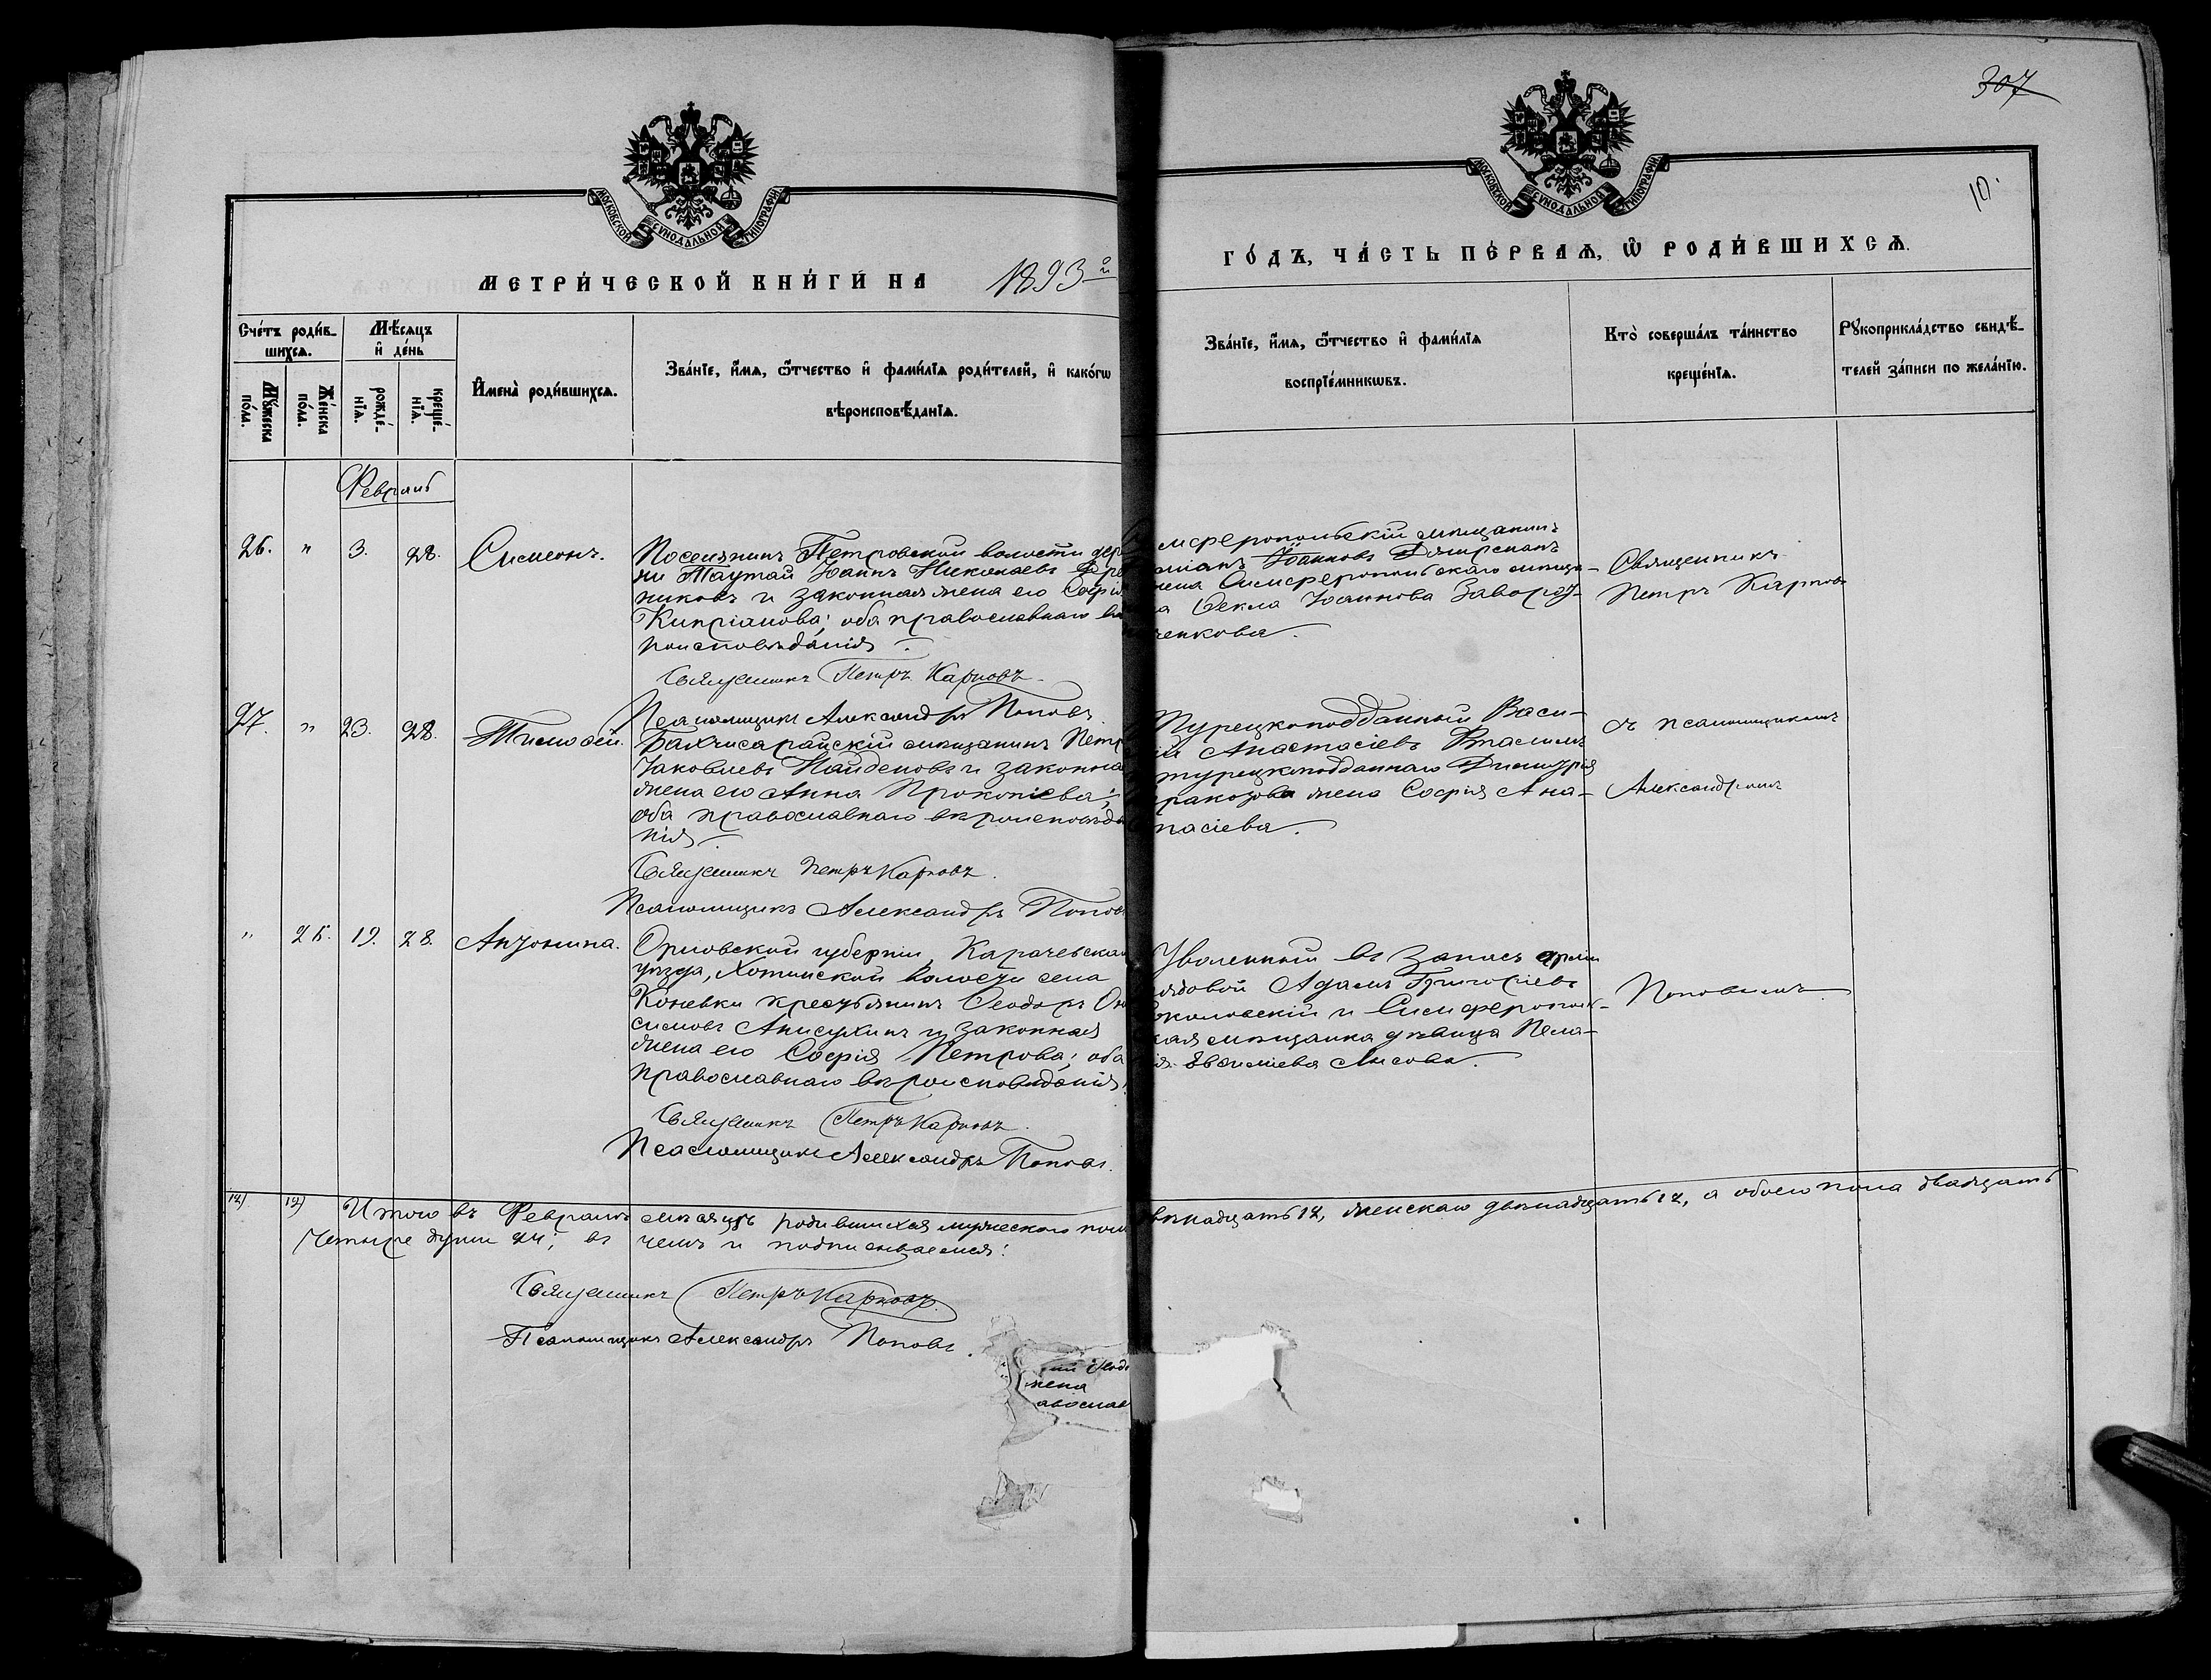 307
10.
МОСКОВСКОЙ СѴНОДАЛЬНОЙ ТИПОГРАФІИ
МОСКОВСКОЙ СѴНОДАЛЬНОЙ ТИПОГРАФІИ
МЕТРИ́ЧЕСКОЙ КНИ́ГИ НА 1893й
ГО́ДЪ, ЧА́СТЬ ПЕ́РВАѦ, Ѡ҆ РОДИ́ВШИХСѦ.
Сче́тъ роди́в-
шихсѧ.
Мꙋ́жеска по́ла.
Же́нска по́ла.
Мѣ́сѧцъ
и҆ де́нь
рожде́-
нїѧ.
креще́-
нїѧ.
И҆мена̀ роди́вшихсѧ.
Зва́нїе, и҆́мѧ, ѻ҆́тчество и҆ фами́лїѧ роди́телей, и҆ како́гѡ
вѣроисповѣ́данїѧ.
Зва́нїе, и҆́мѧ, ѻ҆́тчество и҆ фами́лїѧ
воспрїе́мникѡвъ.
Кто̀ соверша́лъ та́инство
креще́нїѧ.
Рꙋкоприкла́дство свидѣ́-
телей за́писи по жела́нїю.
Февраль
26. " 3. 28. Симеонъ.
Поселянинъ Петровской волости дер
ни Таутай Іоаннъ Николаевъ
никовъ и законная жена его Софія
Кипріанова; оба православнаго вѣ
роисповѣданія.
Священникъ Петръ Карповъ
Псаломщикъ Александръ Поповъ
мферопольскій мѣщанинъ
Іоанновъ
жена Симферопольскаго мѣща-
на Ѳекла Іоаннова Заворот-
ченкова.
Священникъ
Петръ Карповъ
27. " 23. 28. Тимоѳей.
Бахчисарайскій мѣщанинъ Петръ
Іаковлевъ Найденовъ и законная
жена его Анна Прокопіева;
оба православнаго вѣроисповѣда
нія.
Священникъ Петръ Карповъ.
Псаломщикъ Александръ Поповъ
Турецкоподданный Васи-
лій Анастасіевъ
турецкоподданнаго Димитрія
жена Софія Ана-
стасіева.
съ псаломщикомъ
Александромъ
" 25. 19. 28. Антонина.
Орловской губерніи, Карачевскаго
уѣзда, Хотинской волости села
Коневки крестьянинъ Ѳеодоръ Они
симовъ Анисухинъ и законная
жена его Софія Петрова; оба
православнаго вѣроисповѣданія.
Священникъ Петръ Карповъ.
Псаломщикъ Александръ Поповъ.
Уволенный въ запасъ арміи
рядовой Адамъ Григоріевъ
околовскій и Симферополь-
ская мѣщанка дѣвица Пела-
гія Лисова.
Поповымъ
12) 12) Итого въ Февралѣ мѣсяцѣ родившихся мужескаго пола
двѣнадцать 12, женскаго двѣнадцать 12, а обоего пола двадцать
четыре души 24; въ чемъ и подписываемся:
Священникъ Петръ Карповъ.
Псаломщикъ Александръ Поповъ.
жена
авослав